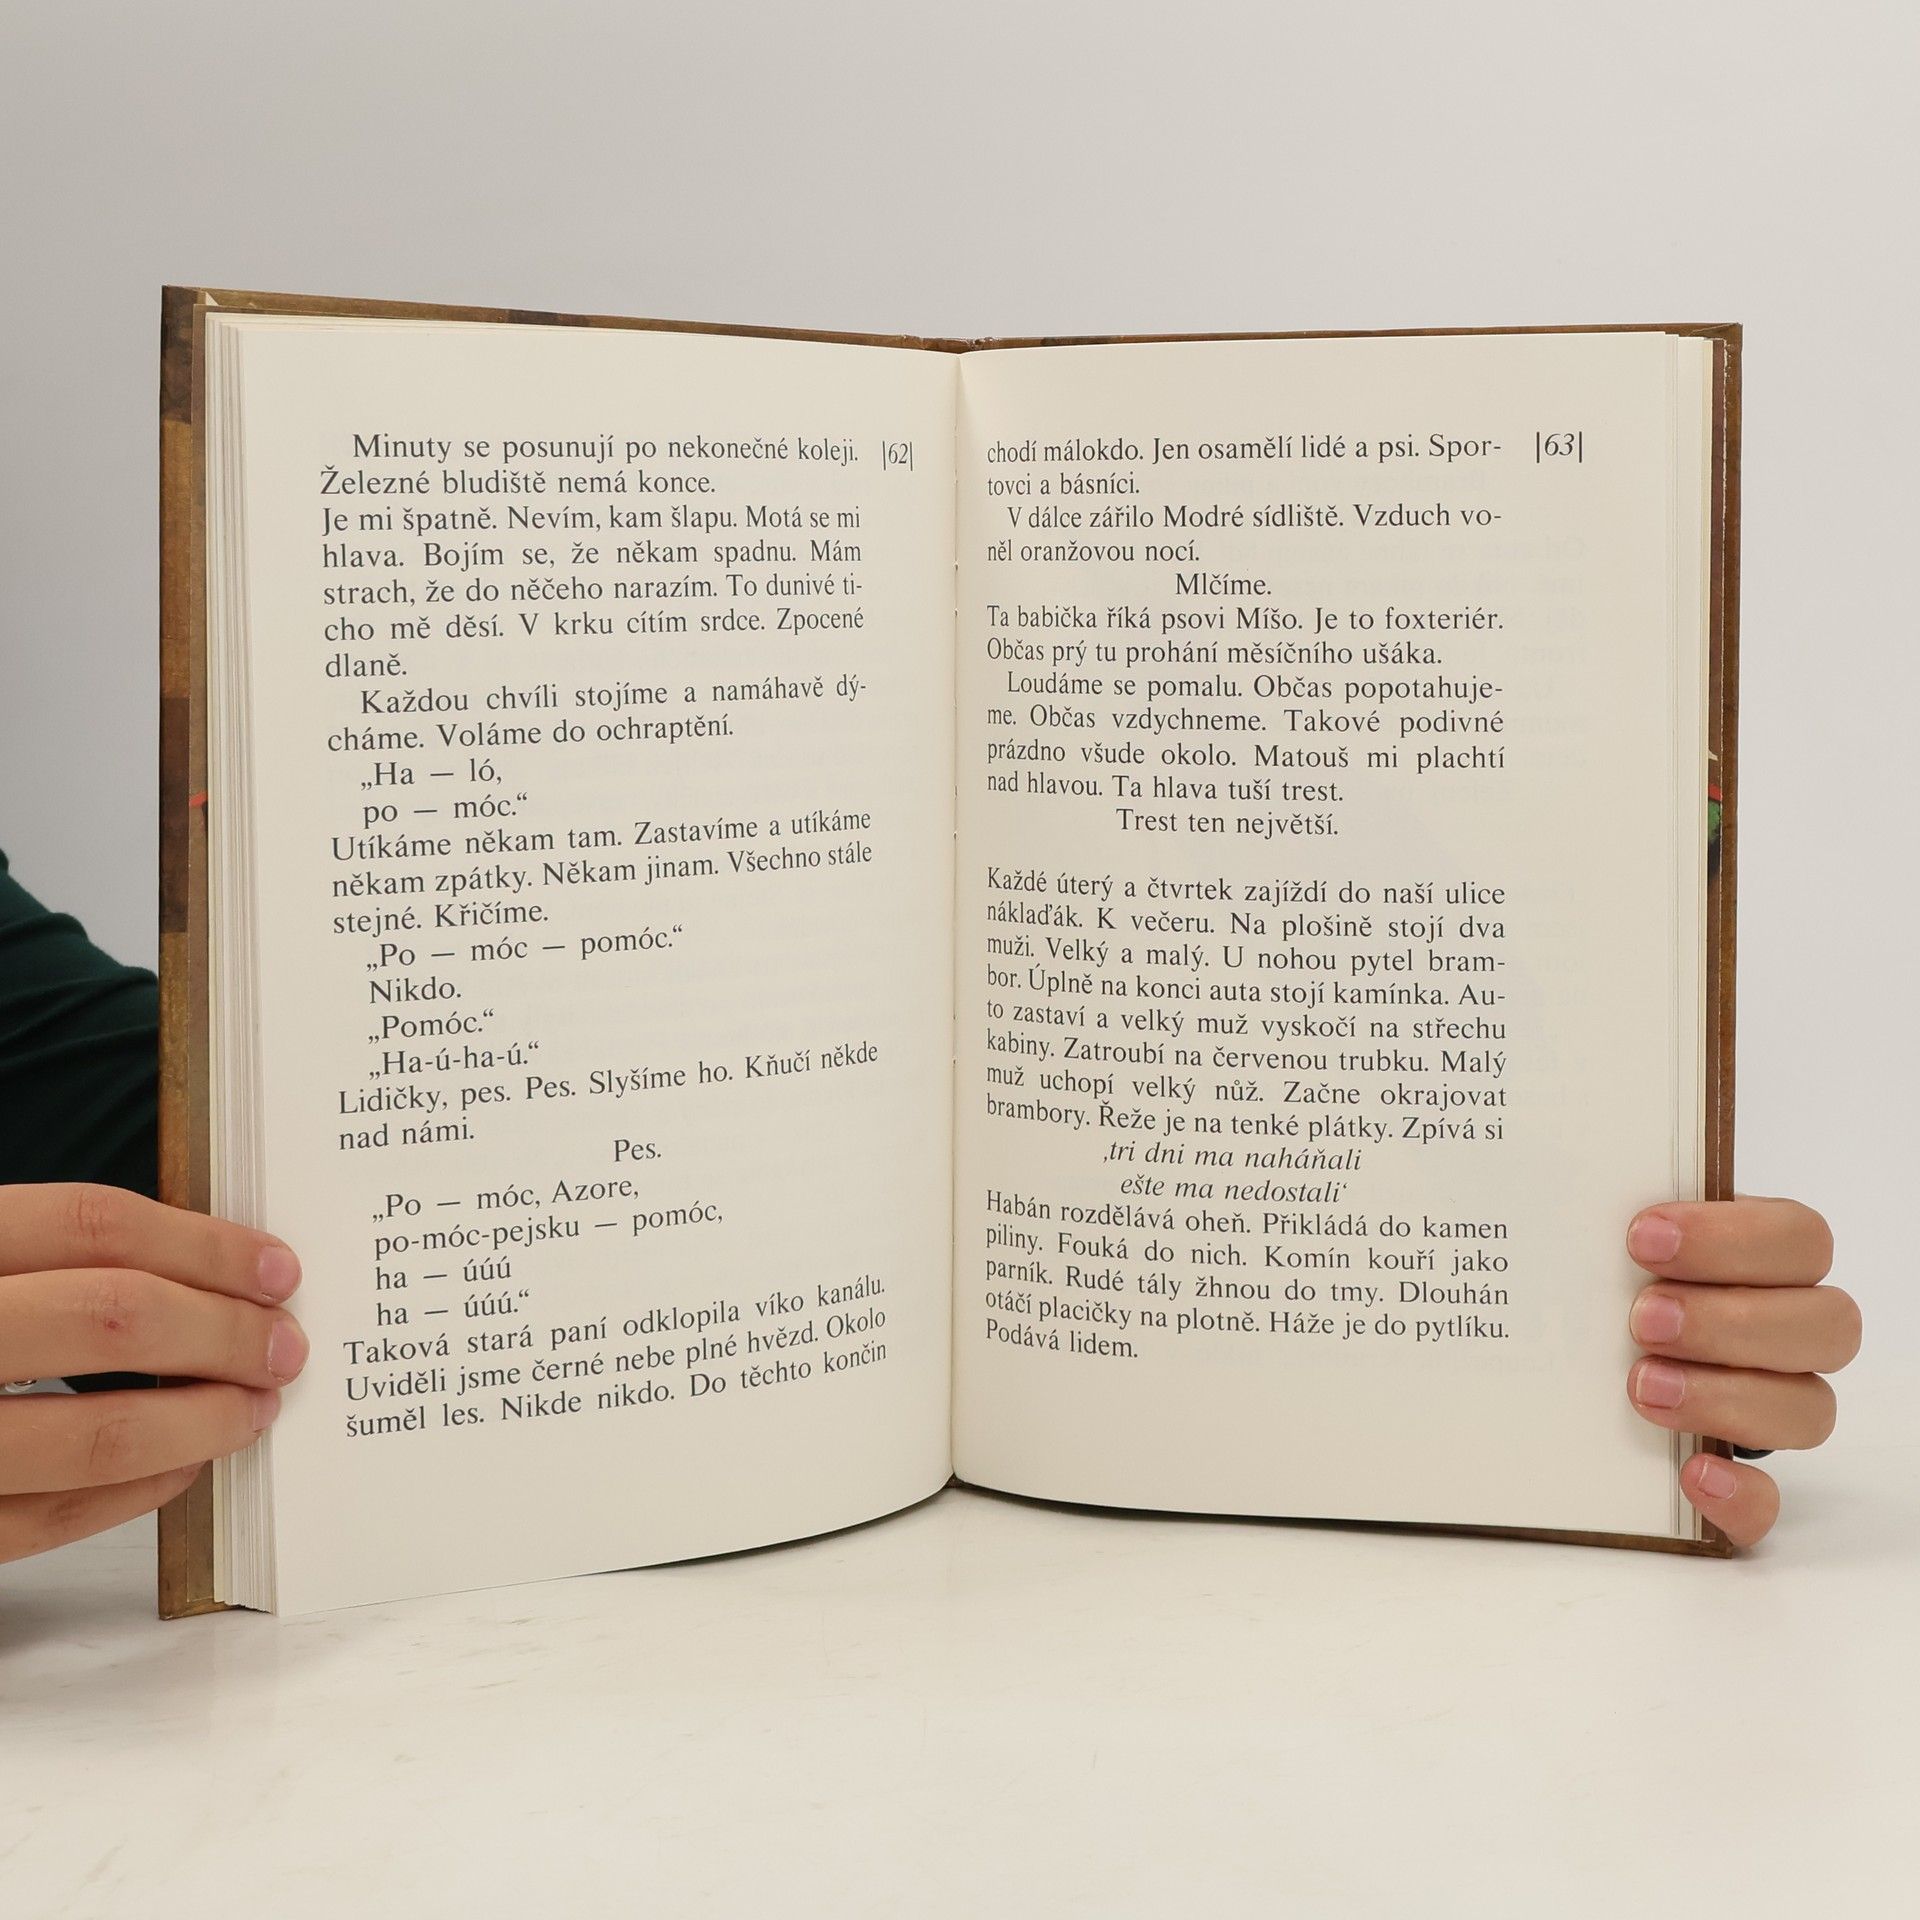 Minuty se posunují po nekonečné koleji. |62|
Železné bludiště nemá konce.
Je mi špatně. Nevím, kam šlapu. Motá se mi
hlava. Bojím se, že někam spadnu. Mám
strach, že do něčeho narazím. To dunivé ti-
cho mě děsí. V krku cítím srdce. Zpocené
dlaně.
Každou chvíli stojíme a namáhavě dý-
cháme. Voláme do ochraptění.
„Ha — ló,
po — móc.“
Utíkáme někam tam. Zastavíme a utíkáme
někam zpátky. Někam jinam. Všechno stále
stejné. Křičíme.
„Po — móc — pomóc.“
Nikdo.
„Pomóc.“
„Ha-ú-ha-ú.“
Lidičky, pes. Pes. Slyšíme ho. Kňučí někde
nad námi.
Pes.
„Po — móc, Azore,
po-móc-pejsku — pomóc,
ha — úúú
ha — úúú.“
Taková stará paní odklopila víko kanálu.
Uviděli jsme černé nebe plné hvězd. Okolo
šuměl les. Nikde nikdo. Do těchto končin
chodí málokdo. Jen osamělí lidé a psi. Spor- |63|
tovci a básníci.
V dálce zářilo Modré sídliště. Vzduch vo-
něl oranžovou nocí.
Mlčíme.
Ta babička říká psovi Míšo. Je to foxteriér.
Občas prý tu prohání měsíčního ušáka.
Loudáme se pomalu. Občas popotahuje-
me. Občas vzdychneme. Takové podivné
prázdno všude okolo. Matouš mi plachtí
nad hlavou. Ta hlava tuší trest.
Trest ten největší.
Každé úterý a čtvrtek zajíždí do naší ulice
náklaďák. K večeru. Na plošině stojí dva
muži. Velký a malý. U nohou pytel bram-
bor. Úplně na konci auta stojí kamínka. Au-
to zastaví a velký muž vyskočí na střechu
kabiny. Zatroubí na červenou trubku. Malý
muž uchopí velký nůž. Začne okrajovat
brambory. Řeže je na tenké plátky. Zpívá si
‚tri dni ma naháňali
ešte ma nedostali‘
Habán rozdělává oheň. Přikládá do kamen
piliny. Fouká do nich. Komín kouří jako
parník. Rudé tály žhnou do tmy. Dlouhán
otáčí placičky na plotně. Háže je do pytlíku.
Podává lidem.